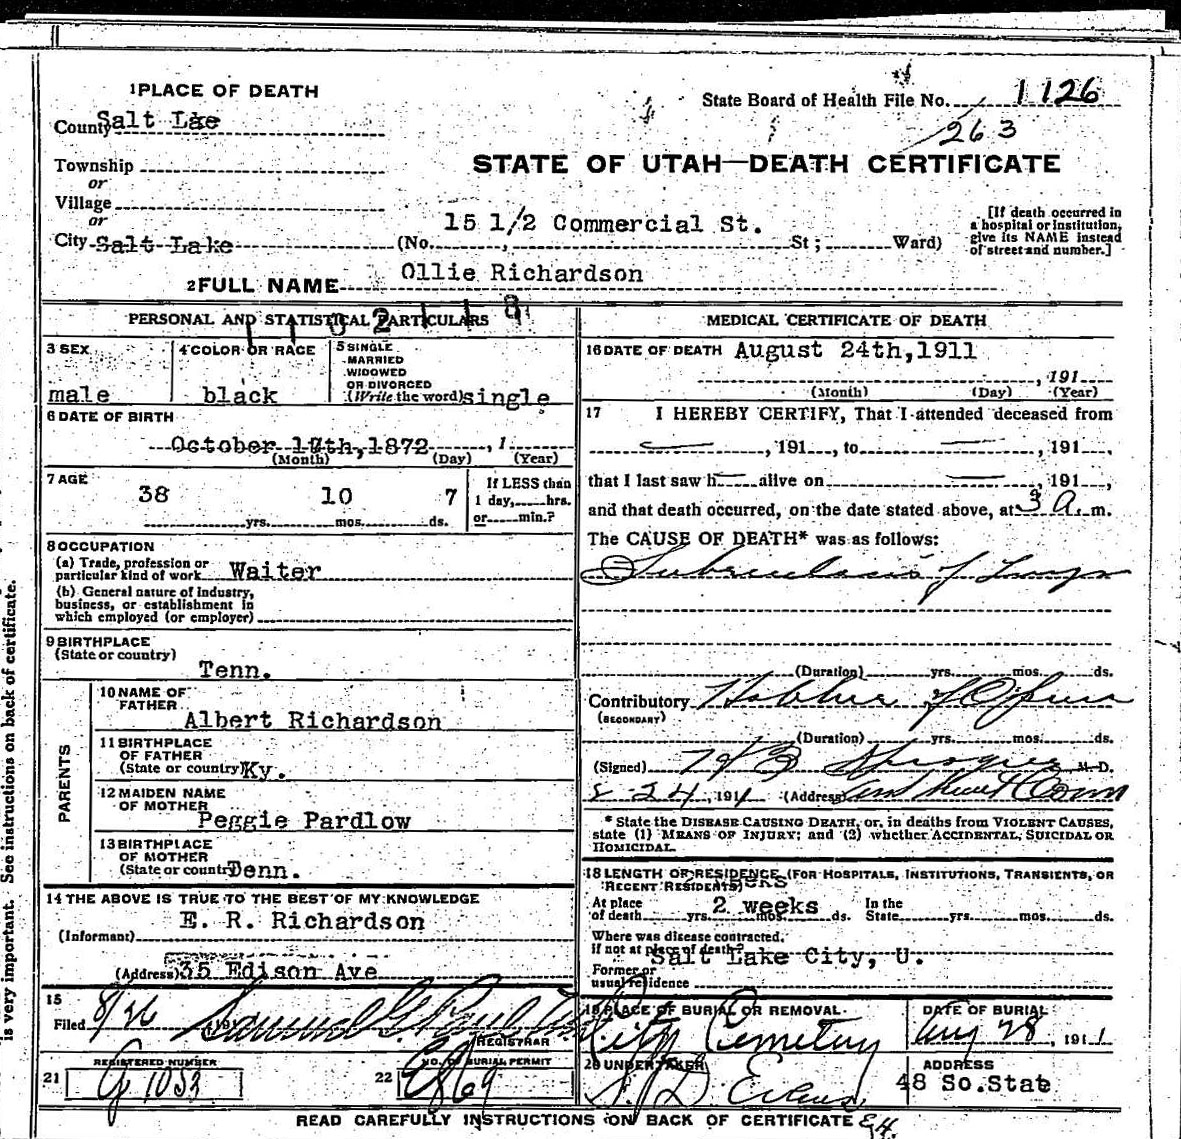 1 PLACE OF DEATH
State Board of Health File No. 1126
County Salt Lae
263
Township
or
STATE OF UTAH—DEATH CERTIFICATE
Village
or
15 1/2 Commercial St.
[If death occurred in
a hospital or institution,
give its NAME instead
of street and number.]
City Salt Lake (No. , St ; Ward)
2 FULL NAME Ollie Richardson
PERSONAL AND STATISTICAL PARTICULARS
3 SEX male
4 COLOR OR RACE black
5 SINGLE
MARRIED
WIDOWED
OR DIVORCED
(Write the word) single
6 DATE OF BIRTH
October 17th, 1872 , 1
(Month) (Day) (Year)
7 AGE
38 10 7
yrs. mos. ds.
If LESS than
1 day, hrs.
or min.?
8 OCCUPATION
(a) Trade, profession or
particular kind of work Waiter
(b) General nature of industry,
business, or establishment in
which employed (or employer)
9 BIRTHPLACE
(State or country)
Tenn.
PARENTS
10 NAME OF
FATHER
Albert Richardson
11 BIRTHPLACE
OF FATHER
(State or country) Ky.
12 MAIDEN NAME
OF MOTHER
Peggie Pardlow
13 BIRTHPLACE
OF MOTHER
(State or country) Tenn.
14 THE ABOVE IS TRUE TO THE BEST OF MY KNOWLEDGE
E. R. Richardson
(Informant)
(Address) 35 Edison Ave
15
Filed 8/26 191 Samuel G. Paul
REGISTRAR
REGISTERED NUMBER
21 G 1053
NO. OF BURIAL PERMIT
22
MEDICAL CERTIFICATE OF DEATH
16 DATE OF DEATH August 24th, 1911
, 191
(Month) (Day) (Year)
17 I HEREBY CERTIFY, That I attended deceased from
, 191 , to , 191 ,
that I last saw h alive on , 191 ,
and that death occurred, on the date stated above, at 3 a. m.
The CAUSE OF DEATH* was as follows:
Tuberculosis of Lungs
(Duration) yrs. mos. ds.
Contributory
(SECONDARY)
(Duration) yrs. mos. ds.
(Signed) Sprague M. D.
8-24, 1911 (Address)
* State the DISEASE CAUSING DEATH, or, in deaths from VIOLENT CAUSES,
state (1) MEANS OF INJURY; and (2) whether ACCIDENTAL, SUICIDAL OR
HOMICIDAL.
18 LENGTH OF RESIDENCE (FOR HOSPITALS, INSTITUTIONS, TRANSIENTS, OR
RECENT RESIDENTS)
At place
of death yrs. 2 weeks mos. ds.
In the
State yrs. mos. ds.
Where was disease contracted,
if not at place of death? Salt Lake City, U.
Former or
usual residence
19 PLACE OF BURIAL OR REMOVAL
City Cemetery
DATE OF BURIAL
Aug 28, 1911
20 UNDERTAKER
S. D. Evans
ADDRESS
48 So. State
READ CAREFULLY INSTRUCTIONS ON BACK OF CERTIFICATE
is very important. See instructions on back of certificate.